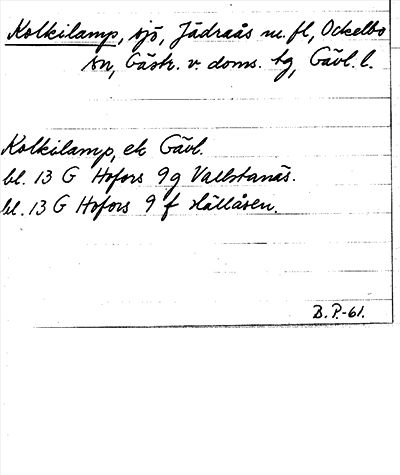 Kolkilamp, sjö, Jädraås m. fl, Ockelbo
sn, Gästr. v. doms. tg, Gävl. l.
Kolkilamp, ek Gävl.
bl. 13 G Hofors 9g Vallstanäs.
bl. 13 G Hofors 9 f Hällåsen.
B. P.-61.